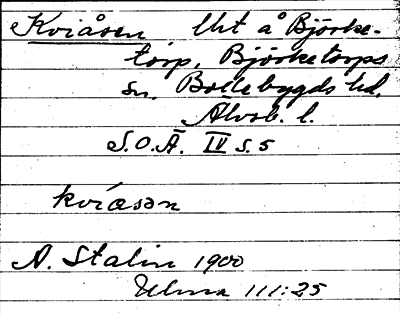 Kviåsen, lht å Björke-
torp, Björketorps
sn, Bollebygds hd.
Älvsb. l.
S.O.Ä. IV s. 5
kvíasən
A. Stalin 1900
Ulma 111:25